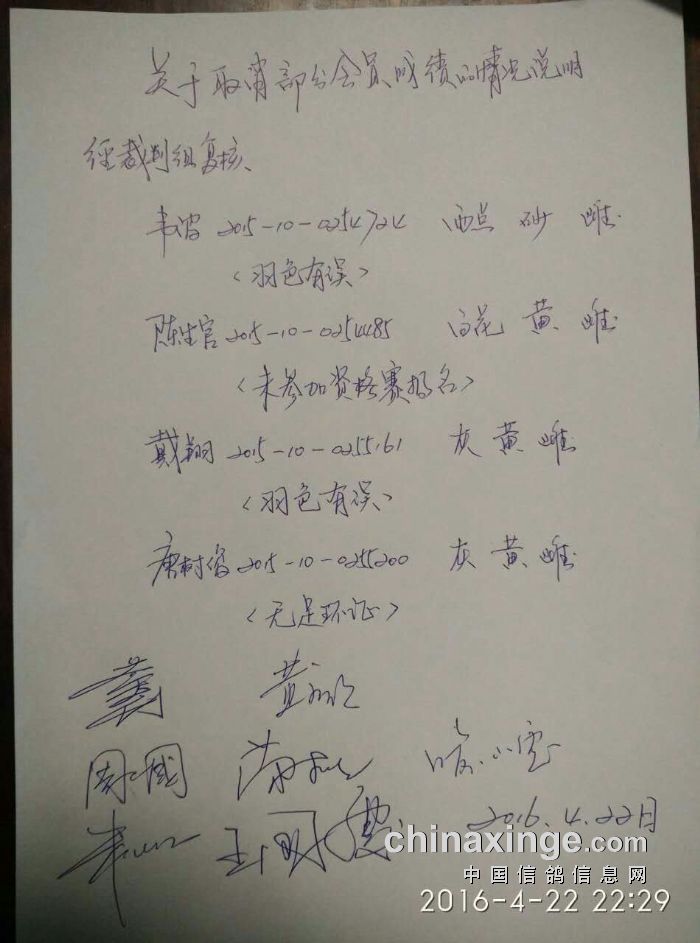 关于取消部分会员成绩的情况说明
经裁判组复核、
韦波 2015-10-0254724 雨点 砂 雌
<羽色有误>
陈生官 2015-10-0254485 白花 黄 雌
<未参加资格赛报名>
戴翔 2015-10-0255161 灰 黄 雌
<羽色有误>
唐树俊 2015-10-0255200 灰 黄 雌
<无足环证>
2016.4.22日
chinaxinge.com
中国信鸽信息网
2016-4-22 22:29